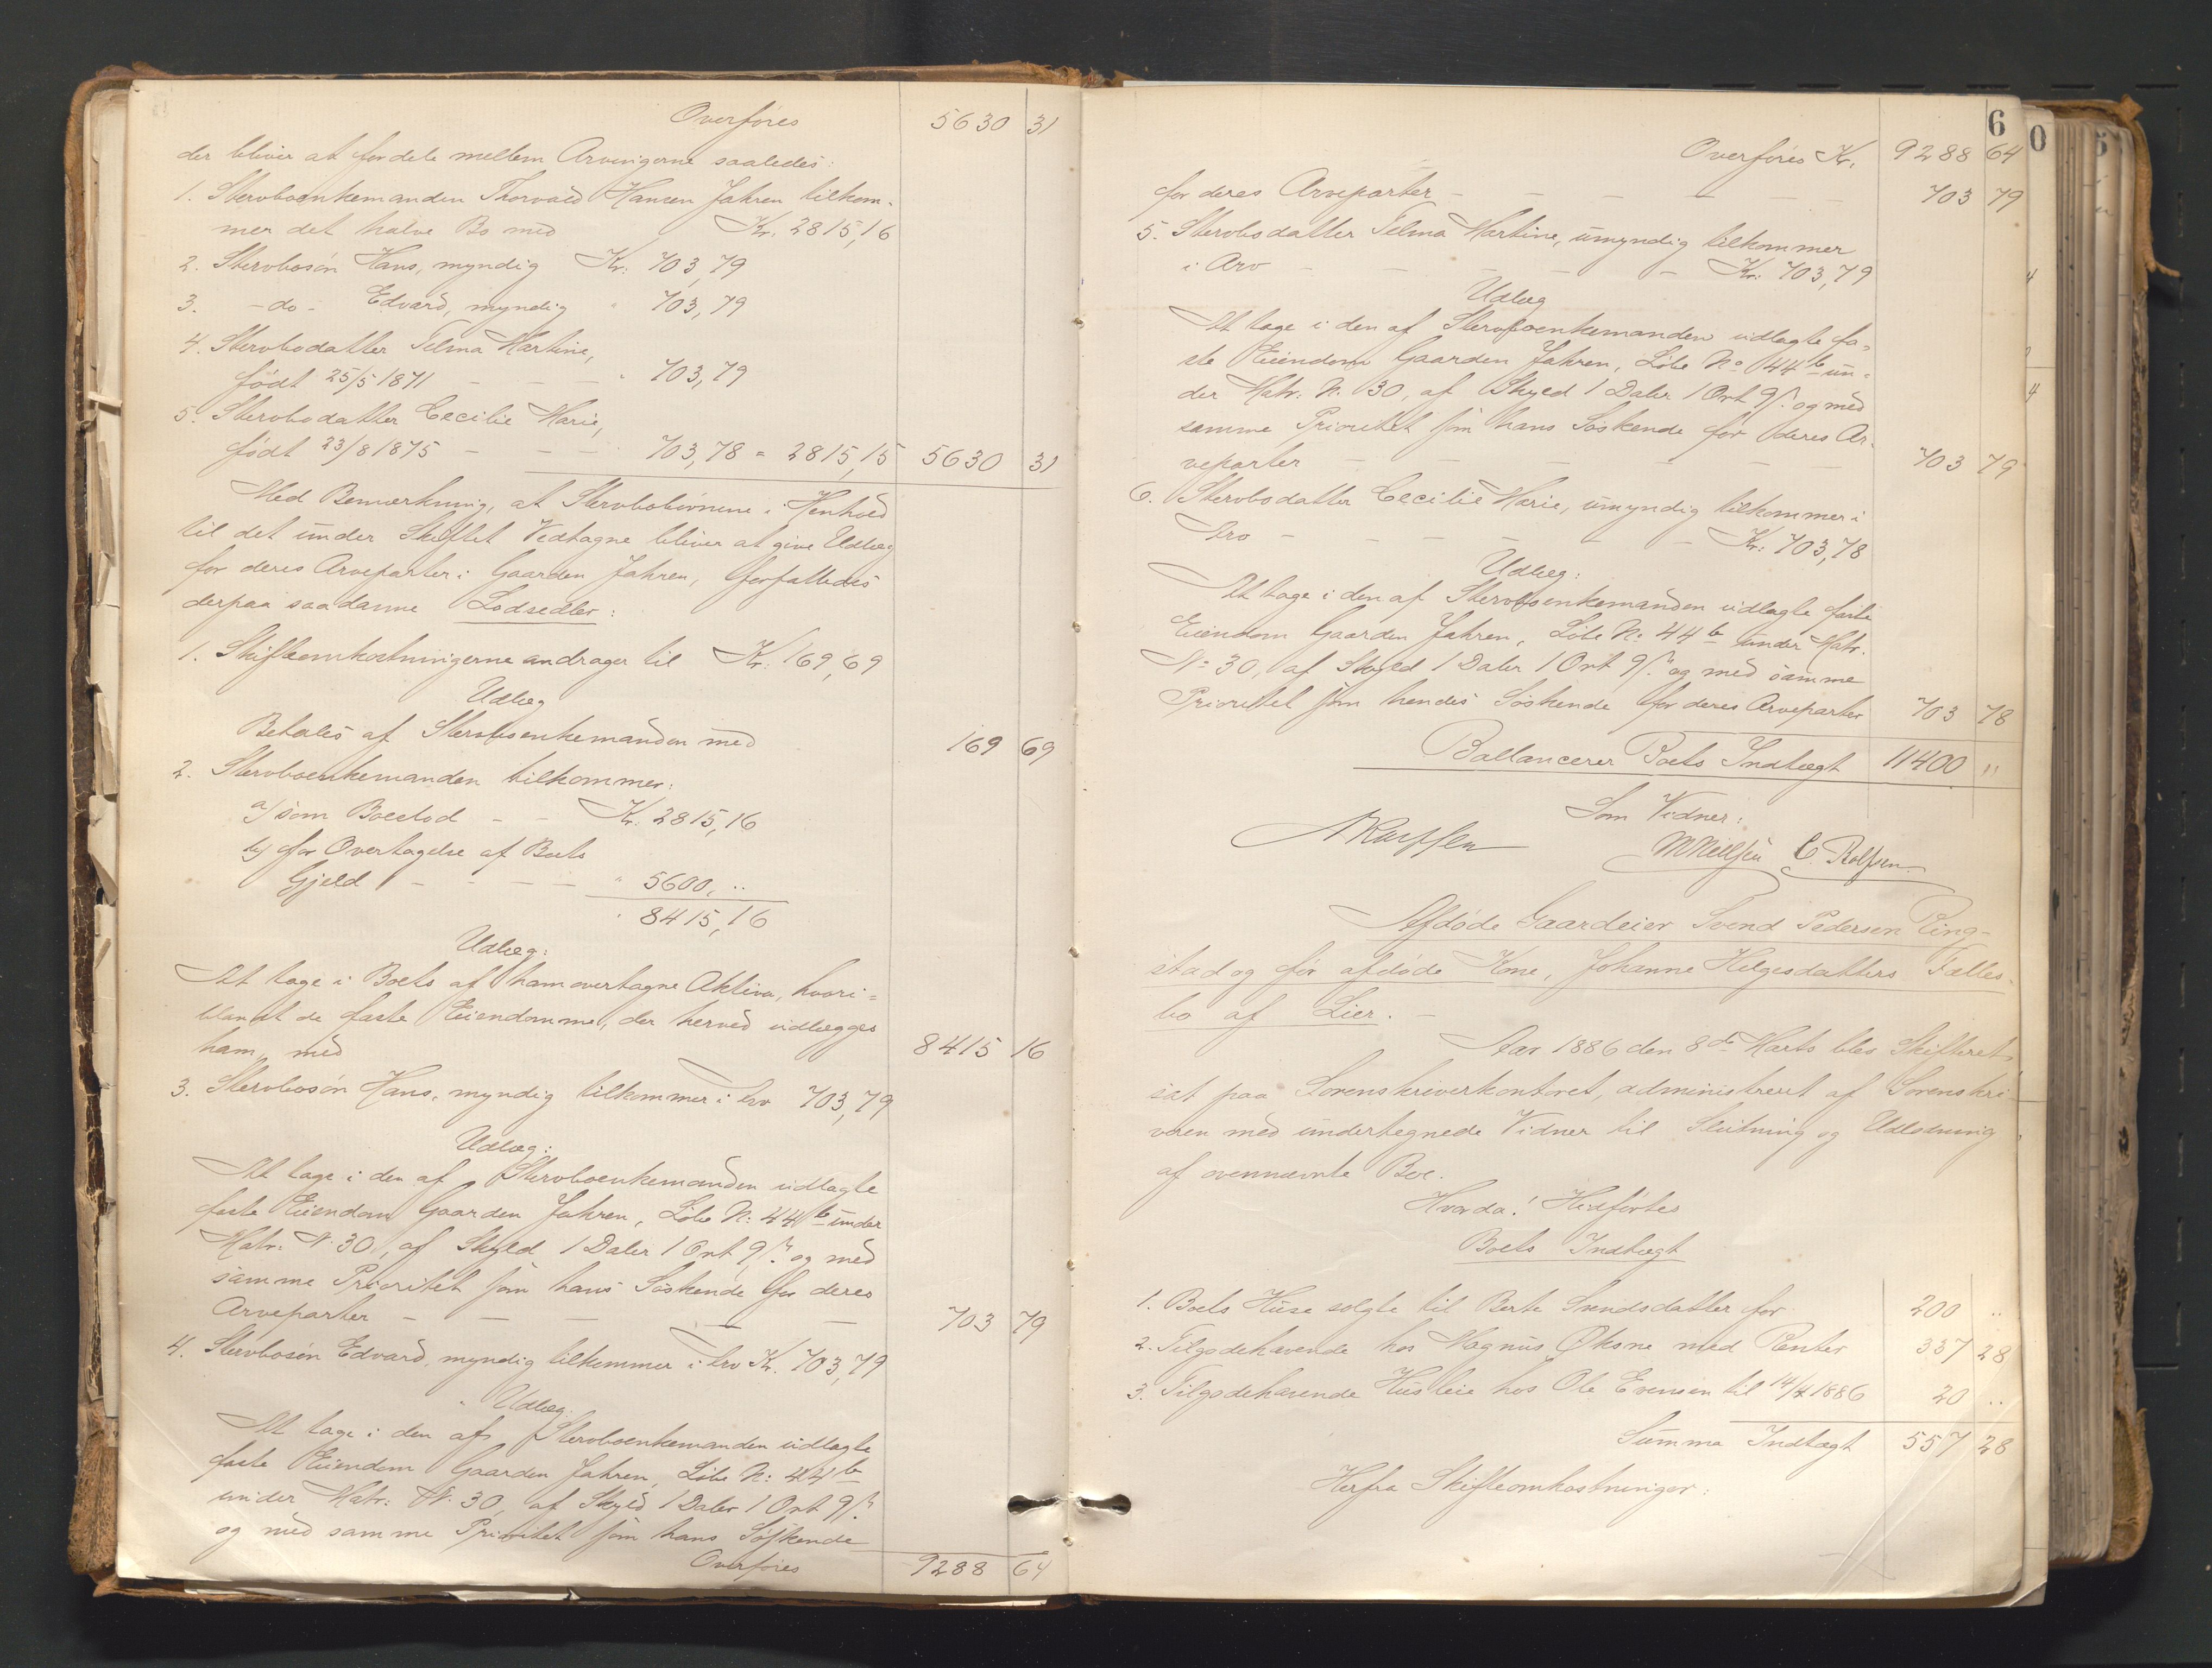 Overføres 5630 31
der bliver at fordele mellem Arvingerne saaledes:
1. Stervboenkemanden Thorvald Hansen Jahren tilkom-
mer det halve Bo med Kr. 2815,16
2. Stervbosøn Hans, myndig Kr: 703,79
3. -do- Edvard, myndig " 703,79
4. Stervbodatter Telma Martine,
født 25/5 1871 - - - " 703,79
5. Stervbodatter Cecilie Marie,
født 23/8 1875 - - - 703,78 = 2815,15 5630 31
Med Bemærkning, at Stervbobørnene i Henhold
til det under Skiftet Vedtagne bliver at give Udlæg
for deres Arveparter i Gaarden Jahren, forfattedes
derpaa saadanne Lodsedler:
1. Skifteomkostningerne andrager til Kr: 169,69
Udlæg
Betales af Stervboenkemanden med 169 69
2. Stervboenkemanden tilkommer:
a) som Boeslod - - Kr. 2815,16
b) for Overtagelse af Boets
Gjeld - - - - " 5600, ..
" 8415,16
Udlæg:
At tage i Boets af ham overtagne Aktiva, hvori-
blandt de faste Eiendomme, der herved udlægges
ham, med 8415 16
3. Stervbosøn Hans, myndig tilkommer i Arv 703,79
Udlæg:
At tage i den af Stervboenkemanden udlagte
faste Eiendom Gaarden Jahren, Løbe N: 44 b under
Matr: N. 30, af Skyld 1 Daler 1 Ort 9 s. og med
samme Prioritet som hans Søskende for deres
Arveparter - - - - - 703 79
4. Stervbosøn Edvard, myndig tilkommer i Arv Kr. 703,79
Udlæg:
At tage i den af Stervboenkemanden udlagte
faste Eiendom Gaarden Jahren, Løbe N: 44 b
under Matr: N. 30, af Skyld 1 Daler 1 Ort 9 s.
og med samme Prioritet som hans Søskende
Overføres 9288 64
6
Overføres Kr. 9288 64
for deres Arveparter - - - - - - 703 79
5. Stervbodatter Telma Martine, umyndig tilkommer
i Arv - - - - - Kr: 703,79
Udlæg
At tage i den af Stervboenkemanden udlagte fa-
ste Eiendom Gaarden Jahren, Løbe No 44 b un-
der Matr: N. 30, af Skyld 1 Daler 1 Ort 9 s. og med
samme Prioritet som hans Søskende for deres Ar-
veparter - - - - - - 703 79
6. Stervbodatter Cecilie Marie, umyndig tilkommer i
Arv - - - - - Kr: 703,78
Udlæg:
At tage i den af Stervboenkemanden udlagte faste
Eiendom Gaarden Jahren, Løbe N: 44 b under Matr.
No 30, af Skyld 1 Daler 1 Ort 9 s. og med samme
Prioritet som hendes Søskende for deres Arveparter 703 78
Ballancerer Boets Indtægt 11400 "
Som Vidner:
M Nielsen C. Rolfsen
Afdøde Gaardeier Svend Pedersen Ring-
stad og før afdøde Kone, Johanne Helgesdatters Fælles-
bo af Lier. -
Aar 1886 den 8de Marts blev Skifteret
sat paa Sorenskriverkontoret, administreret af Sorenskri-
veren med undertegnede Vidner til Slutning og Udlodning
af ovennævnte Boe.
Hvorda! Hidførtes
Boets Indtægt
1. Boets Huse solgte til Berte Svendsdatter for 200 ..
2. Tilgodehavende hos Magnus Øksne med Renter 337 28
3. Tilgodehavende Husleie hos Ole Evensen til 14/4 1886 20 ..
Summa Indtægt 557 28
Herfra Skifteomkostninger: